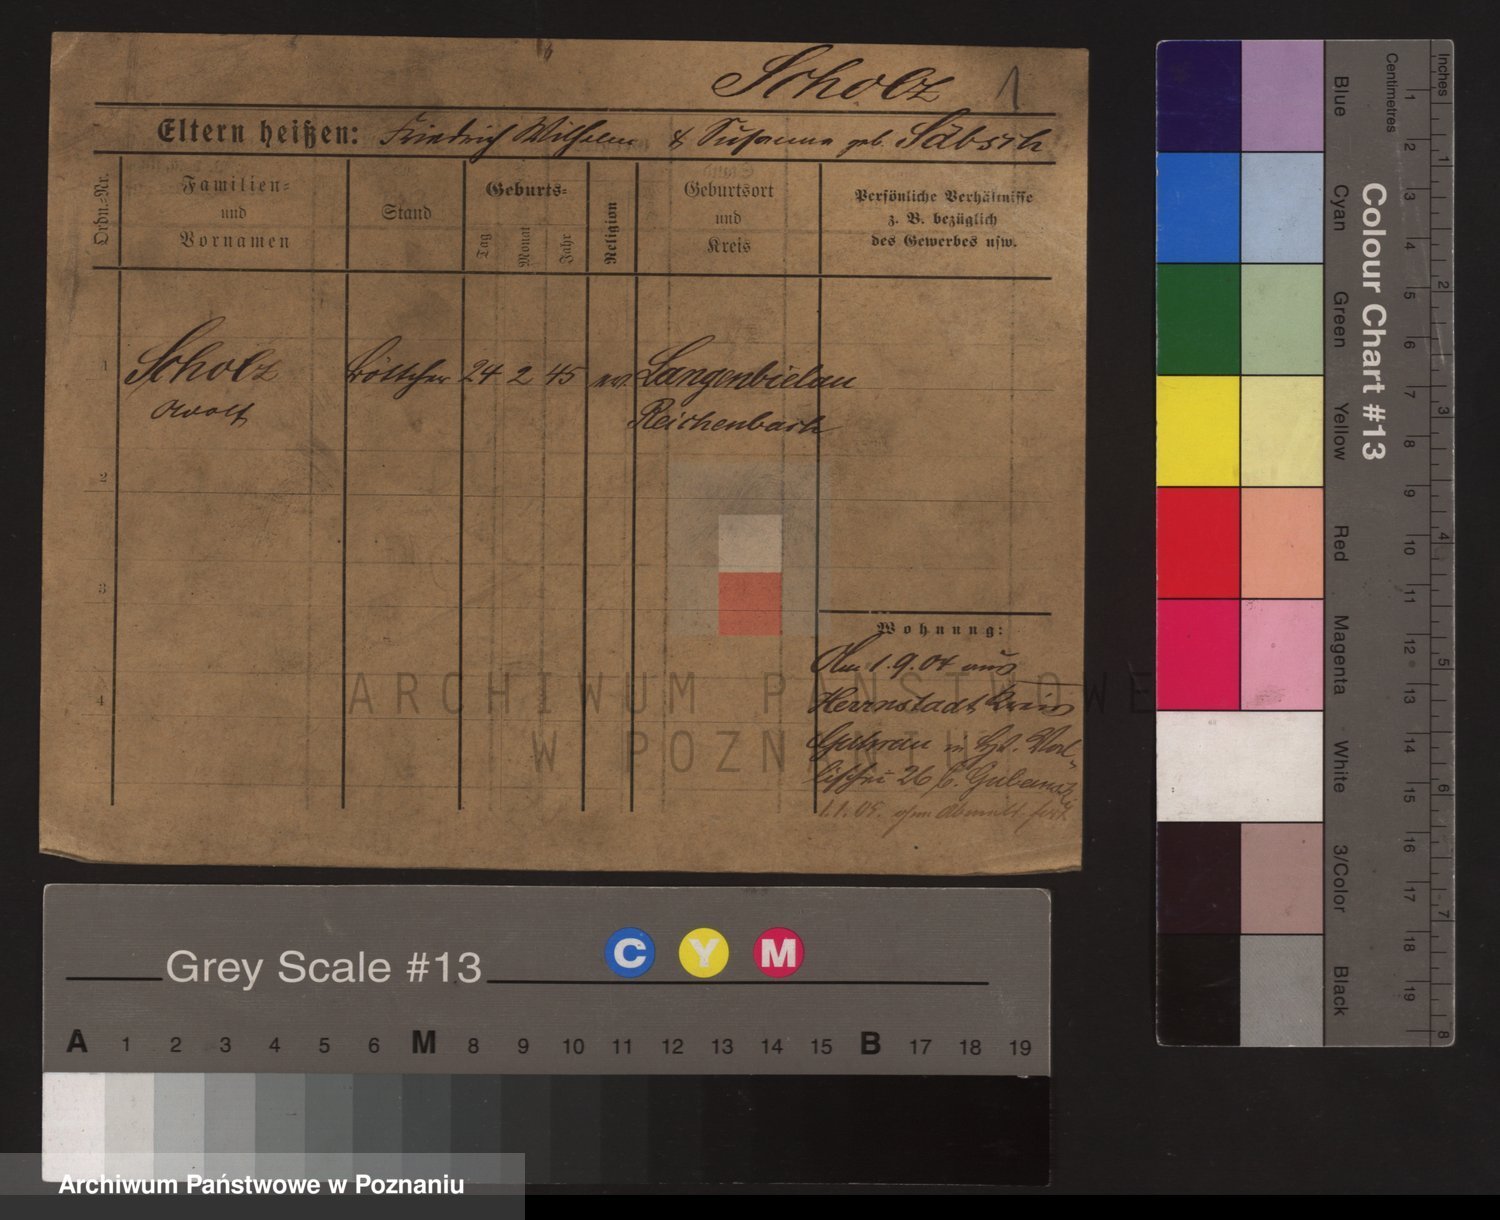 Scholz 1
Eltern heißen: Friedrich Wilhelm & Susanna geb. Säbsch
Ordn.-Nr.
Familien-
und
Vornamen
Stand
Geburts-
Tag
Monat
Jahr
Religion
Geburtsort
und
Kreis
Persönliche Verhältnisse
z. B. bezüglich
des Gewerbes usw.
1 Scholz Böttcher 24 2 45 ev. Langenbielau
Adolf Reichenbach
2
3
4
Wohnung:
Am 1.9.04 aus
Herrnstadt Kreis
Guhrau
26 b.
1.1.05.
ARCHIWUM PAŃSTWOWE
W POZNANIU
Grey Scale #13
C Y M
A 1 2 3 4 5 6 M 8 9 10 11 12 13 14 15 B 17 18 19
Archiwum Państwowe w Poznaniu
Colour Chart #13
Blue
Cyan
Green
Yellow
Red
Magenta
White
3/Color
Black
Centimetres
1 2 3 4 5 6 7 8 9 10 11 12 13 14 15 16 17 18 19
Inches
1 2 3 4 5 6 7 8